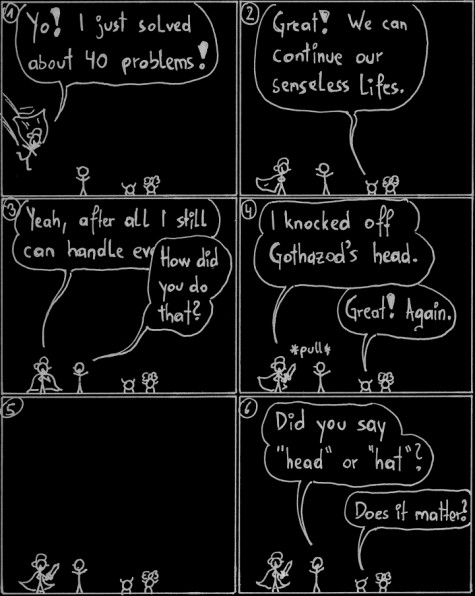 1
Yo! I just solved
about 40 problems!
2
Great! We can
continue our
senseless lifes.
3
Yeah, after all I still
can handle eve
How did
you do
that?
4
I knocked off
Gothazod's head.
*pull*
Great! Again.
5
6
Did you say
"head" or "hat"?
Does it matter?